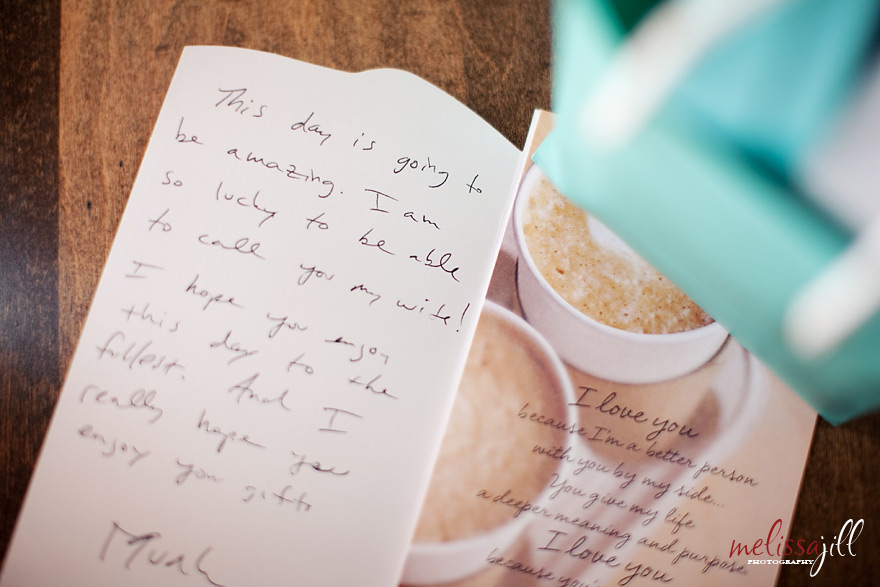 This day is going to
be amazing. I am
so lucky to be able
to call you my wife!
I hope you enjoy
this day to the
fullest. And I
really hope you
enjoy your gifts
I love you
because I'm a better person
with you by my side...
You give my life
a deeper meaning and purpose.
I love you
because you're
melissajill
PHOTOGRAPHY